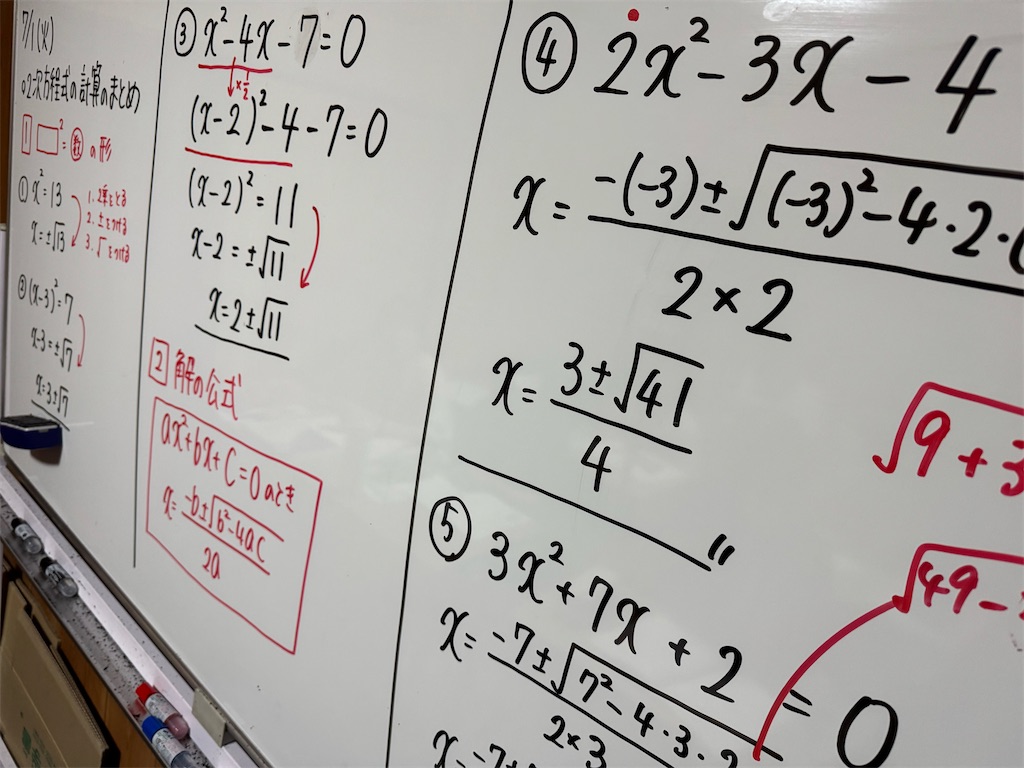 7/1(火)
○2次方程式の計算のまとめ
1 □² = 数 の形
① x² = 13
x = ±√13
1. 2乗をとる
2. ±をつける
3. √をつける
② (x-3)² = 7
x-3 = ±√7
x = 3±√7
③ x² - 4x - 7 = 0
×½
(x-2)² - 4 - 7 = 0
(x-2)² = 11
x-2 = ±√11
x = 2±√11
2 解の公式
ax² + bx + c = 0 のとき
x = -b±√b²-4ac
2a
④ 2x² - 3x - 4
x = -(-3)±√(-3)² - 4・2・(
2 × 2
x = 3±√41
4
√9 + 3
⑤ 3x² + 7x + 2 = 0
x = -7±√7² - 4・3・2
2×3
√49 -
x = -7±